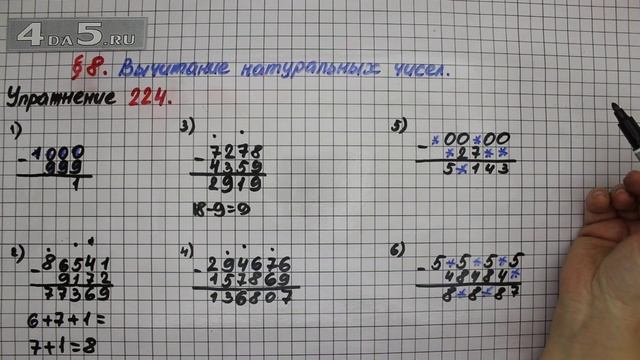 4DA5.RU
§ 8. Вычитание натуральных чисел.
Упражнение 224.
1)
-1000
999
1
2)
-86541
9172
77369
6+7+1=
7+1=8
3)
-7278
4359
2919
18-9=9
4)
-294676
157869
136807
5)
-*00*00
*27**
5*143
6)
-5*5*5*5
48484*
8*8*87